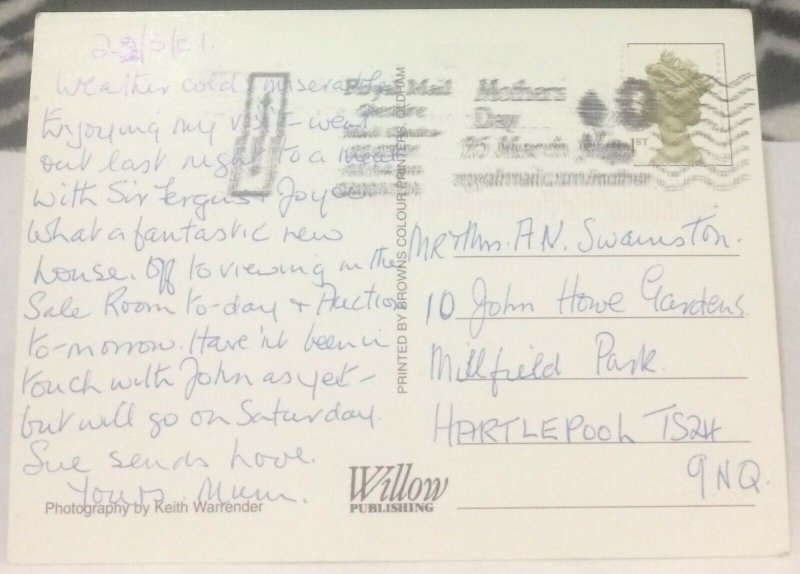 23/3/01.
Weather cold & miserable
Enjoying my visit - went
out last night to a meal
with Sir Fergus & Joyce
What a fantastic new
house. Off to viewing in the
Sale Room to-day & Auction
to-morrow. Have'nt been in
touch with John as yet -
but will go on Saturday
Sue sends love.
Yours Mum.
Photography by Keith Warrender
PRINTED BY BROWNS COLOUR PRINTERS, OLDHAM
Willow
PUBLISHING
Royal Mail
Mothers
Day
25 March
1ST
Mr & Mrs. A.N. Swainston.
10 John Howe Gardens
Millfield Park
HARTLEPOOL TS24
9NQ.